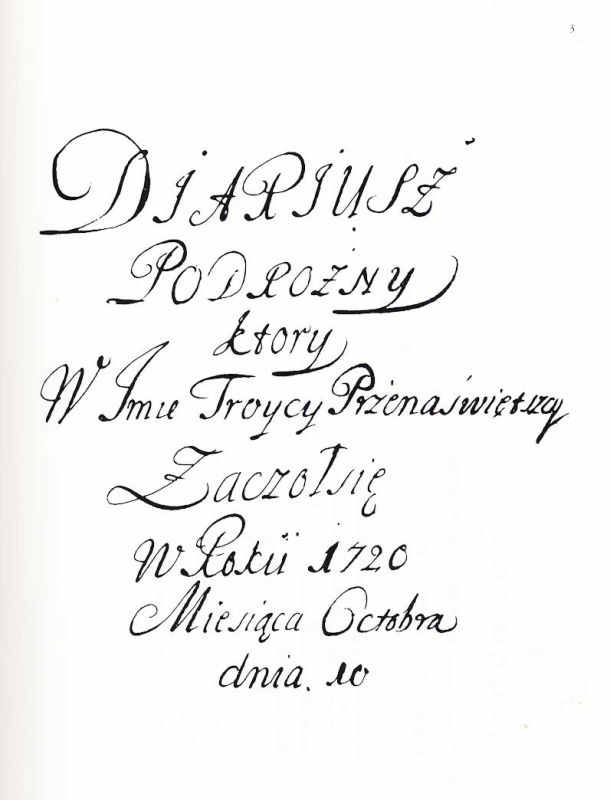 3
DIARIUSZ
PODROżNY
ktory
W Imie Troycy Przenaświętszey
Zaczoł się
W Roku 1720
Miesiąca Octobra
dnia. 10